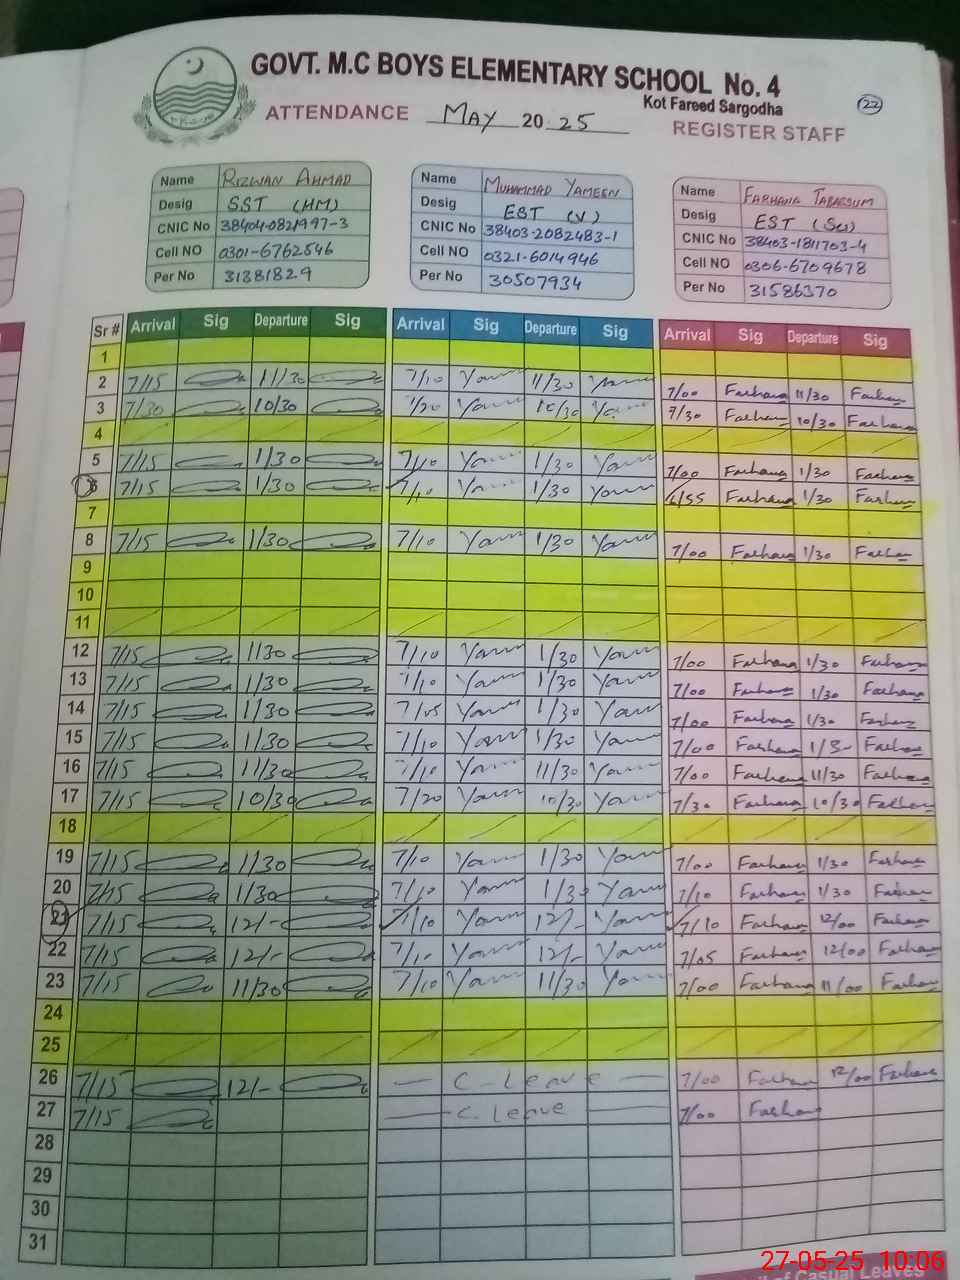 GOVT. M.C BOYS ELEMENTARY SCHOOL No. 4
Kot Fareed Sargodha
22
ATTENDANCE MAY 2025 REGISTER STAFF
Name RIZWAN AHMAD
Desig SST (HM)
CNIC No 38404-0821997-3
Cell NO 0301-6762546
Per No 31381829
Name MUHAMMAD YAMEEN
Desig EST (V)
CNIC No 38403-2082483-1
Cell NO 0321-6014946
Per No 30507934
Name FARHANA TABASSUM
Desig EST (Sci)
CNIC No 38403-1811703-4
Cell NO 0306-6709678
Per No 31586370
Sr # Arrival Sig Departure Sig Arrival Sig Departure Sig Arrival Sig Departure Sig
1
2 7/15 11/30 7/10 Yam 11/30 Yam 7/00 Farhana 11/30 Farhana
3 7/30 10/30 7/20 Yam 10/30 Ya 7/30 Farhana 10/30 Farhana
4
5 7/15 1/30 7/10 Yam 1/30 Yam 7/00 Farhana 1/30 Farhana
6 7/15 1/30 7/10 Yam 1/30 Yam 6/55 Farhana 1/30 Farhana
7
8 7/15 1/30 7/10 Yam 1/30 Yam 7/00 Farhana 1/30 Farhana
9
10
11
12 7/15 1/30 7/10 Yam 1/30 Yam 7/00 Farhana 1/30 Farhana
13 7/15 1/30 7/10 Yam 1/30 Yam 7/00 Farhana 1/30 Farhana
14 7/15 1/30 7/05 Yam 1/30 Yam 7/00 Farhana 1/30 Farhana
15 7/15 1/30 7/10 Yam 1/30 Yam 7/00 Farhana 1/3- Farhana
16 7/15 11/30 7/10 Yam 11/30 Yam 7/00 Farhana 11/30 Farhana
17 7/15 10/30 7/20 Yam 10/30 Yam 7/30 Farhana 10/30 Farhana
18
19 7/15 1/30 7/10 Yam 1/30 Yam 7/00 Farhana 1/30 Farhana
20 7/15 1/30 7/10 Yam 1/30 Yam 7/10 Farhana 1/30 Farhana
21 7/15 12/- 7/10 Yam 12/- Yam 7/10 Farhana 12/00 Farhana
22 7/15 12/- 7/10 Yam 12/- Yam 7/05 Farhana 12/00 Farhana
23 7/15 11/30 7/10 Yam 11/30 Yam 7/00 Farhana 11/00 Farhana
24
25
26 7/15 12/- — C-Leave — 7/00 Farhana 12/00 Farhana
27 7/15 — C.Leave — 7/00 Farhana
28
29
30
31
27-05-25 10:06
of Casual Leaves